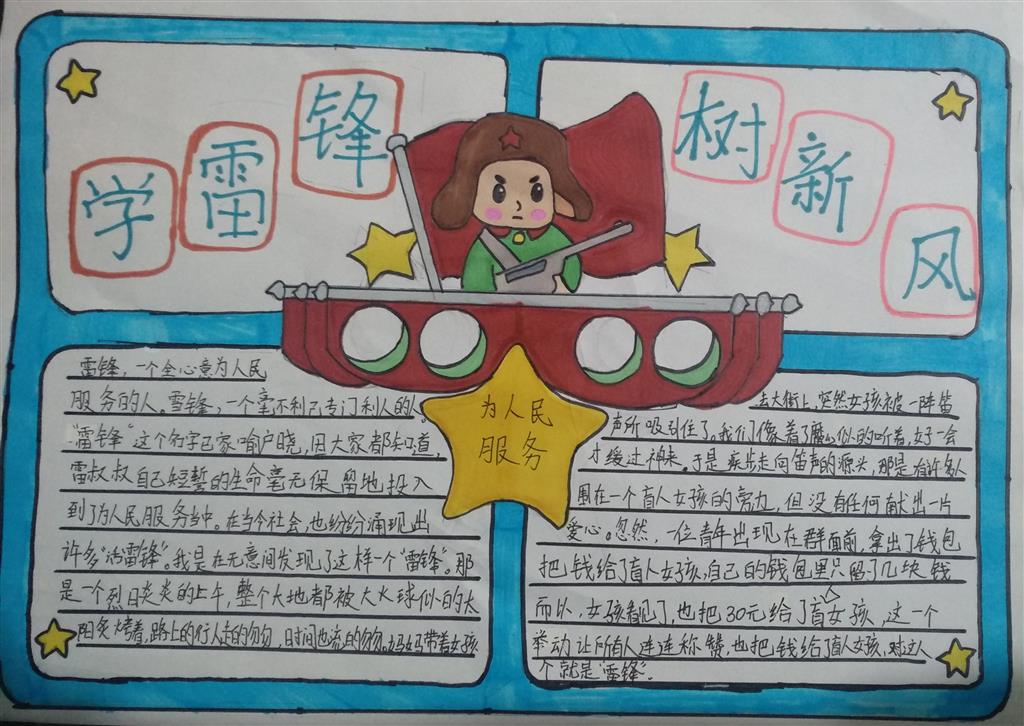 学雷锋
树新风
为人民
服务
雷锋，一个全心意为人民
服务的人。雷锋，一个毫不利己专门利人的人。
“雷锋”这个名字已家喻户晓，因大家都知道，
雷叔叔自己短暂的生命毫无保留地投入
到了为人民服务当中。在当今社会，也纷纷涌现出
许多“活雷锋”。我是在无意间发现了这样一个“雷锋”。那
是一个烈日炎炎的上午，整个大地都被大火球似的太
阳炙烤着，路上的行人走的匆匆，时间也流的匆匆。妈妈带着女孩
去大街上，突然女孩被一阵笛
声所吸引住了。我们像着了魔似的听着，好一会
才缓过神来。于是疾步走向笛声的源头，那是有许多人
围在一个盲人女孩的旁边，但没有任何献出一片
爱心。忽然，一位青年出现在群面前，拿出了钱包
把钱给了盲人女孩，自己的钱包里只留了几块钱
而以，女孩看见了，也把30元给了盲女孩，这一个
举动让所有人连连称赞，也把钱给了盲人女孩，对这人
个就是“雷锋”。